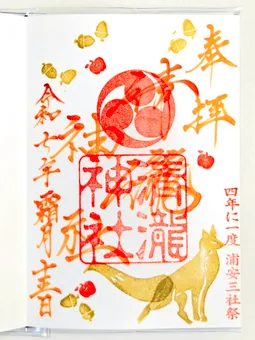 奉拝
四年に一度 浦安三社祭
清瀧
神社
清瀧
神社
令和七年霜月